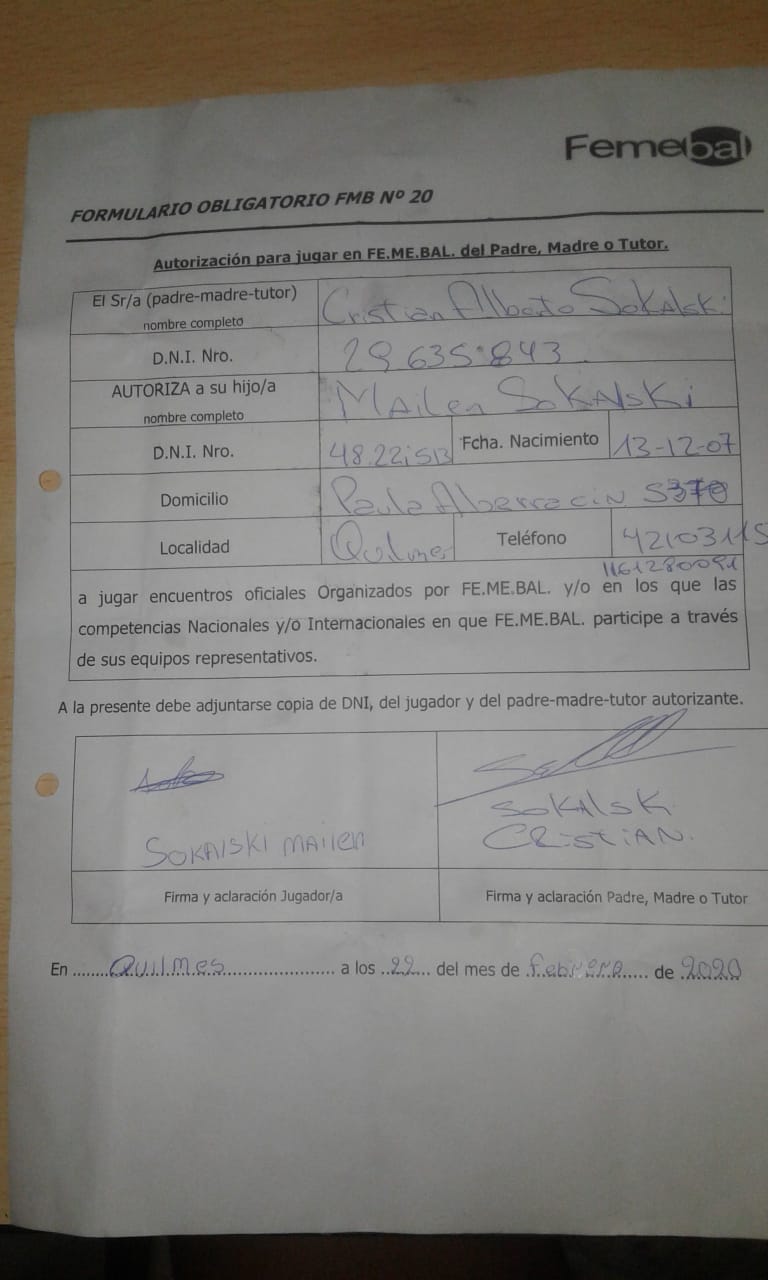 Femebal
FORMULARIO OBLIGATORIO FMB Nº 20
Autorización para jugar en FE.ME.BAL. del Padre, Madre o Tutor.
El Sr/a (padre-madre-tutor) Cristian Alberto Sokalski
nombre completo
D.N.I. Nro. 29.635.843
AUTORIZA a su hijo/a Mailen Sokalski
nombre completo
D.N.I. Nro. Fcha. Nacimiento 13-12-07
Domicilio Paula Alberracin
Localidad Quilmes Teléfono 42103115
1161280091
a jugar encuentros oficiales Organizados por FE.ME.BAL. y/o en los que las
competencias Nacionales y/o Internacionales en que FE.ME.BAL. participe a través
de sus equipos representativos.
A la presente debe adjuntarse copia de DNI, del jugador y del padre-madre-tutor autorizante.
SOKALSKI MAILEN
SOKALSK
CRISTIAN.
Firma y aclaración Jugador/a Firma y aclaración Padre, Madre o Tutor
En ........Quilmes........................ a los ..22.... del mes de .febrero..... de 2020